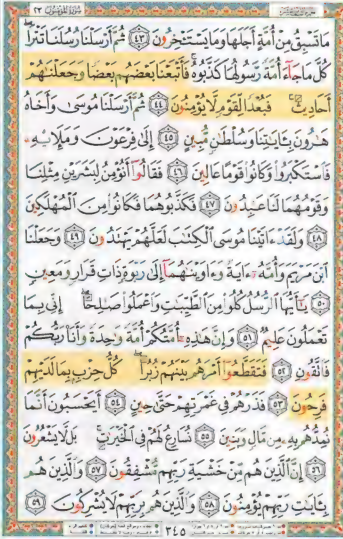 سورة المؤمنون ٢٣
ما تسبق من أمة أجلها وما يستـٔخرون ٤٣ ثم أرسلنا رسلنا تترا
كل ما جاء أمة رسولها كذبوه فأتبعنا بعضهم بعضا وجعلنـهم
أحاديث فبعدا لقوم لا يؤمنون ٤٤ ثم أرسلنا موسى وأخاه
هـرون بـٔايـتنا وسلطـن مبين ٤٥ إلى فرعون وملإيه
فاستكبروا وكانوا قوما عالين ٤٦ فقالوا أنؤمن لبشرين مثلنا
وقومهما لنا عـبدون ٤٧ فكذبوهما فكانوا من المهلكين
٤٨ ولقد ءاتينا موسى الكتـب لعلهم يهتدون ٤٩ وجعلنا
ابن مريم وأمه ءاية وءاوينـهما إلى ربوة ذات قرار ومعين
٥٠ يـأيها الرسل كلوا من الطيبـت واعملوا صـلحا إني بما
تعملون عليم ٥١ وإن هـذه أمتكم أمة وحدة وأنا ربكم
فاتقون ٥٢ فتقطعوا أمرهم بينهم زبرا كل حزب بما لديهم
فرحون ٥٣ فذرهم في غمرتهم حتى حين ٥٤ أيحسبون أنما
نمدهم به من مال وبنين ٥٥ نسارع لهم في الخيرت بل لا يشعرون
٥٦ إن الذين هم من خشية ربهم مشفقون ٥٧ والذين هم
بـٔايـت ربهم يؤمنون ٥٨ والذين هم بربهم لا يشركون ٥٩
٣٤٥